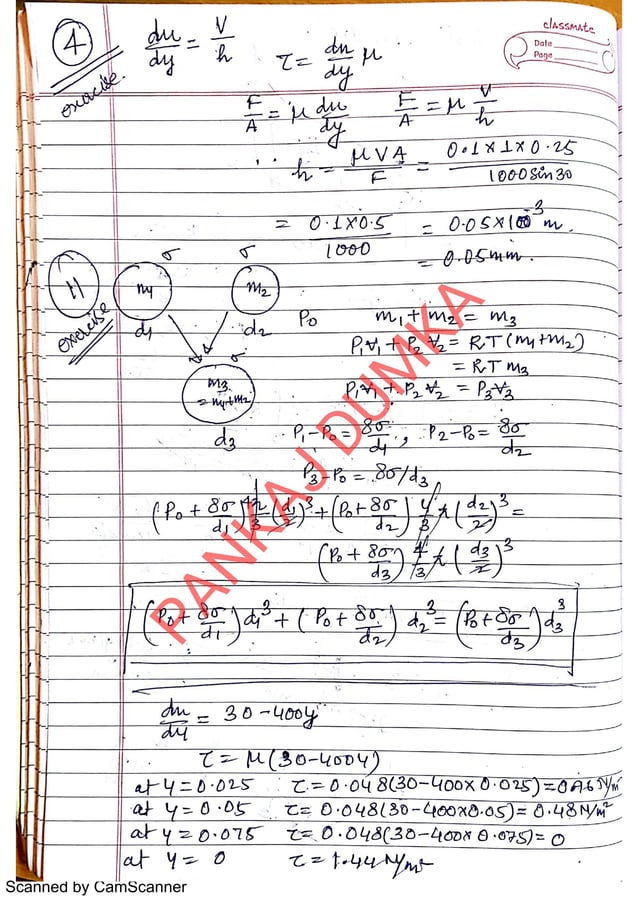 classmate
Date
Page
4
exercise
du/dy = V/h
τ = du/dy μ
F/A = μ du/dy   F/A = μ V/h
∵ h = μVA/F = 0.1×1×0.25/1000 sin30
= 0.1×0.5/1000 = 0.05×10⁻³ m.
= 0.05mm.
11
exercise
σ   σ
m1   m2
d1   d2
σ
m3 = m1+m2
d3
P0   m1+m2 = m3
P1∀1 + P2∀2 = RT(m1+m2)
= RT m3
P1∀1 + P2∀2 = P3∀3
P1-P0 = 8σ/d1, P2-P0 = 8σ/d2
P3-P0 = 8σ/d3
(P0 + 8σ/d1) 4/3 π (d1/2)³ + (P0 + 8σ/d2) 4/3 π (d2/2)³ =
(P0 + 8σ/d3) 4/3 π (d3/2)³
(P0 + 8σ/d1) d1³ + (P0 + 8σ/d2) d2³ = (P0 + 8σ/d3) d3³
du/dy = 30-400y
τ = μ(30-400y)
at y=0.025   τ = 0.048(30-400×0.025) = N/m²
at y=0.05   τ = 0.048(30-400×0.05) = 0.48 N/m²
at y=0.075   τ = 0.048(30-400×0.075) = 0
at y = 0   τ = 1.44 N/m²
PANKAJ DUMKA
Scanned by CamScanner